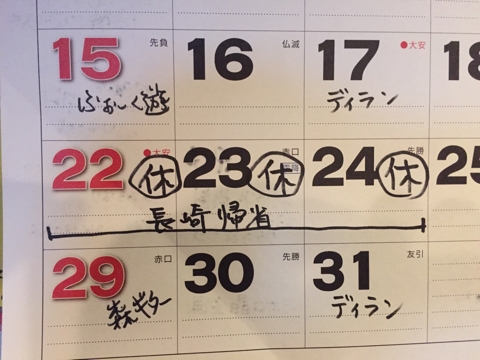 15 先負 16 仏滅 17 ●大安 18
ふぉーく遊 ディラン
22 ●大安 休 23 赤口 休 24 先勝 休 25
長崎帰省
29 赤口 30 先勝 31 友引
森ギター ディラン